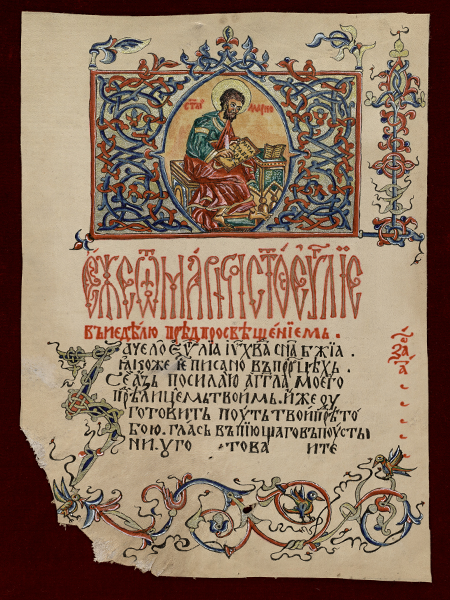 ЕЖЕ Ѿ МАРКА СТОЕ ЕѴЛІЕ
ВЪ НЕДѢЛЮ ПРѢДПРОСВѢЩЕНІЕМЬ .
ЗАЧЕЛО ЕѴЛІА ІУ ХВА СНА БЖІА .
ꙖКОЖЕ Е ПИСАНО ВЪ ПРОЦѢХЬ .
СЕ АЗЪ ПОСИЛАЮ АГГЛА МОЕГО
ПРѢД ЛИЦЕМЬ ТВОИМЬ. ИЖЕ ОУ
ГОТОВИТЬ ПОУТЬ ТВОИ ПРѢТО
БОЮ. ГЛАСЬ ВЪПІЮЩАГО ВЪ ПОУСТЫ
НИ. УГО ТОВА ИТЕ